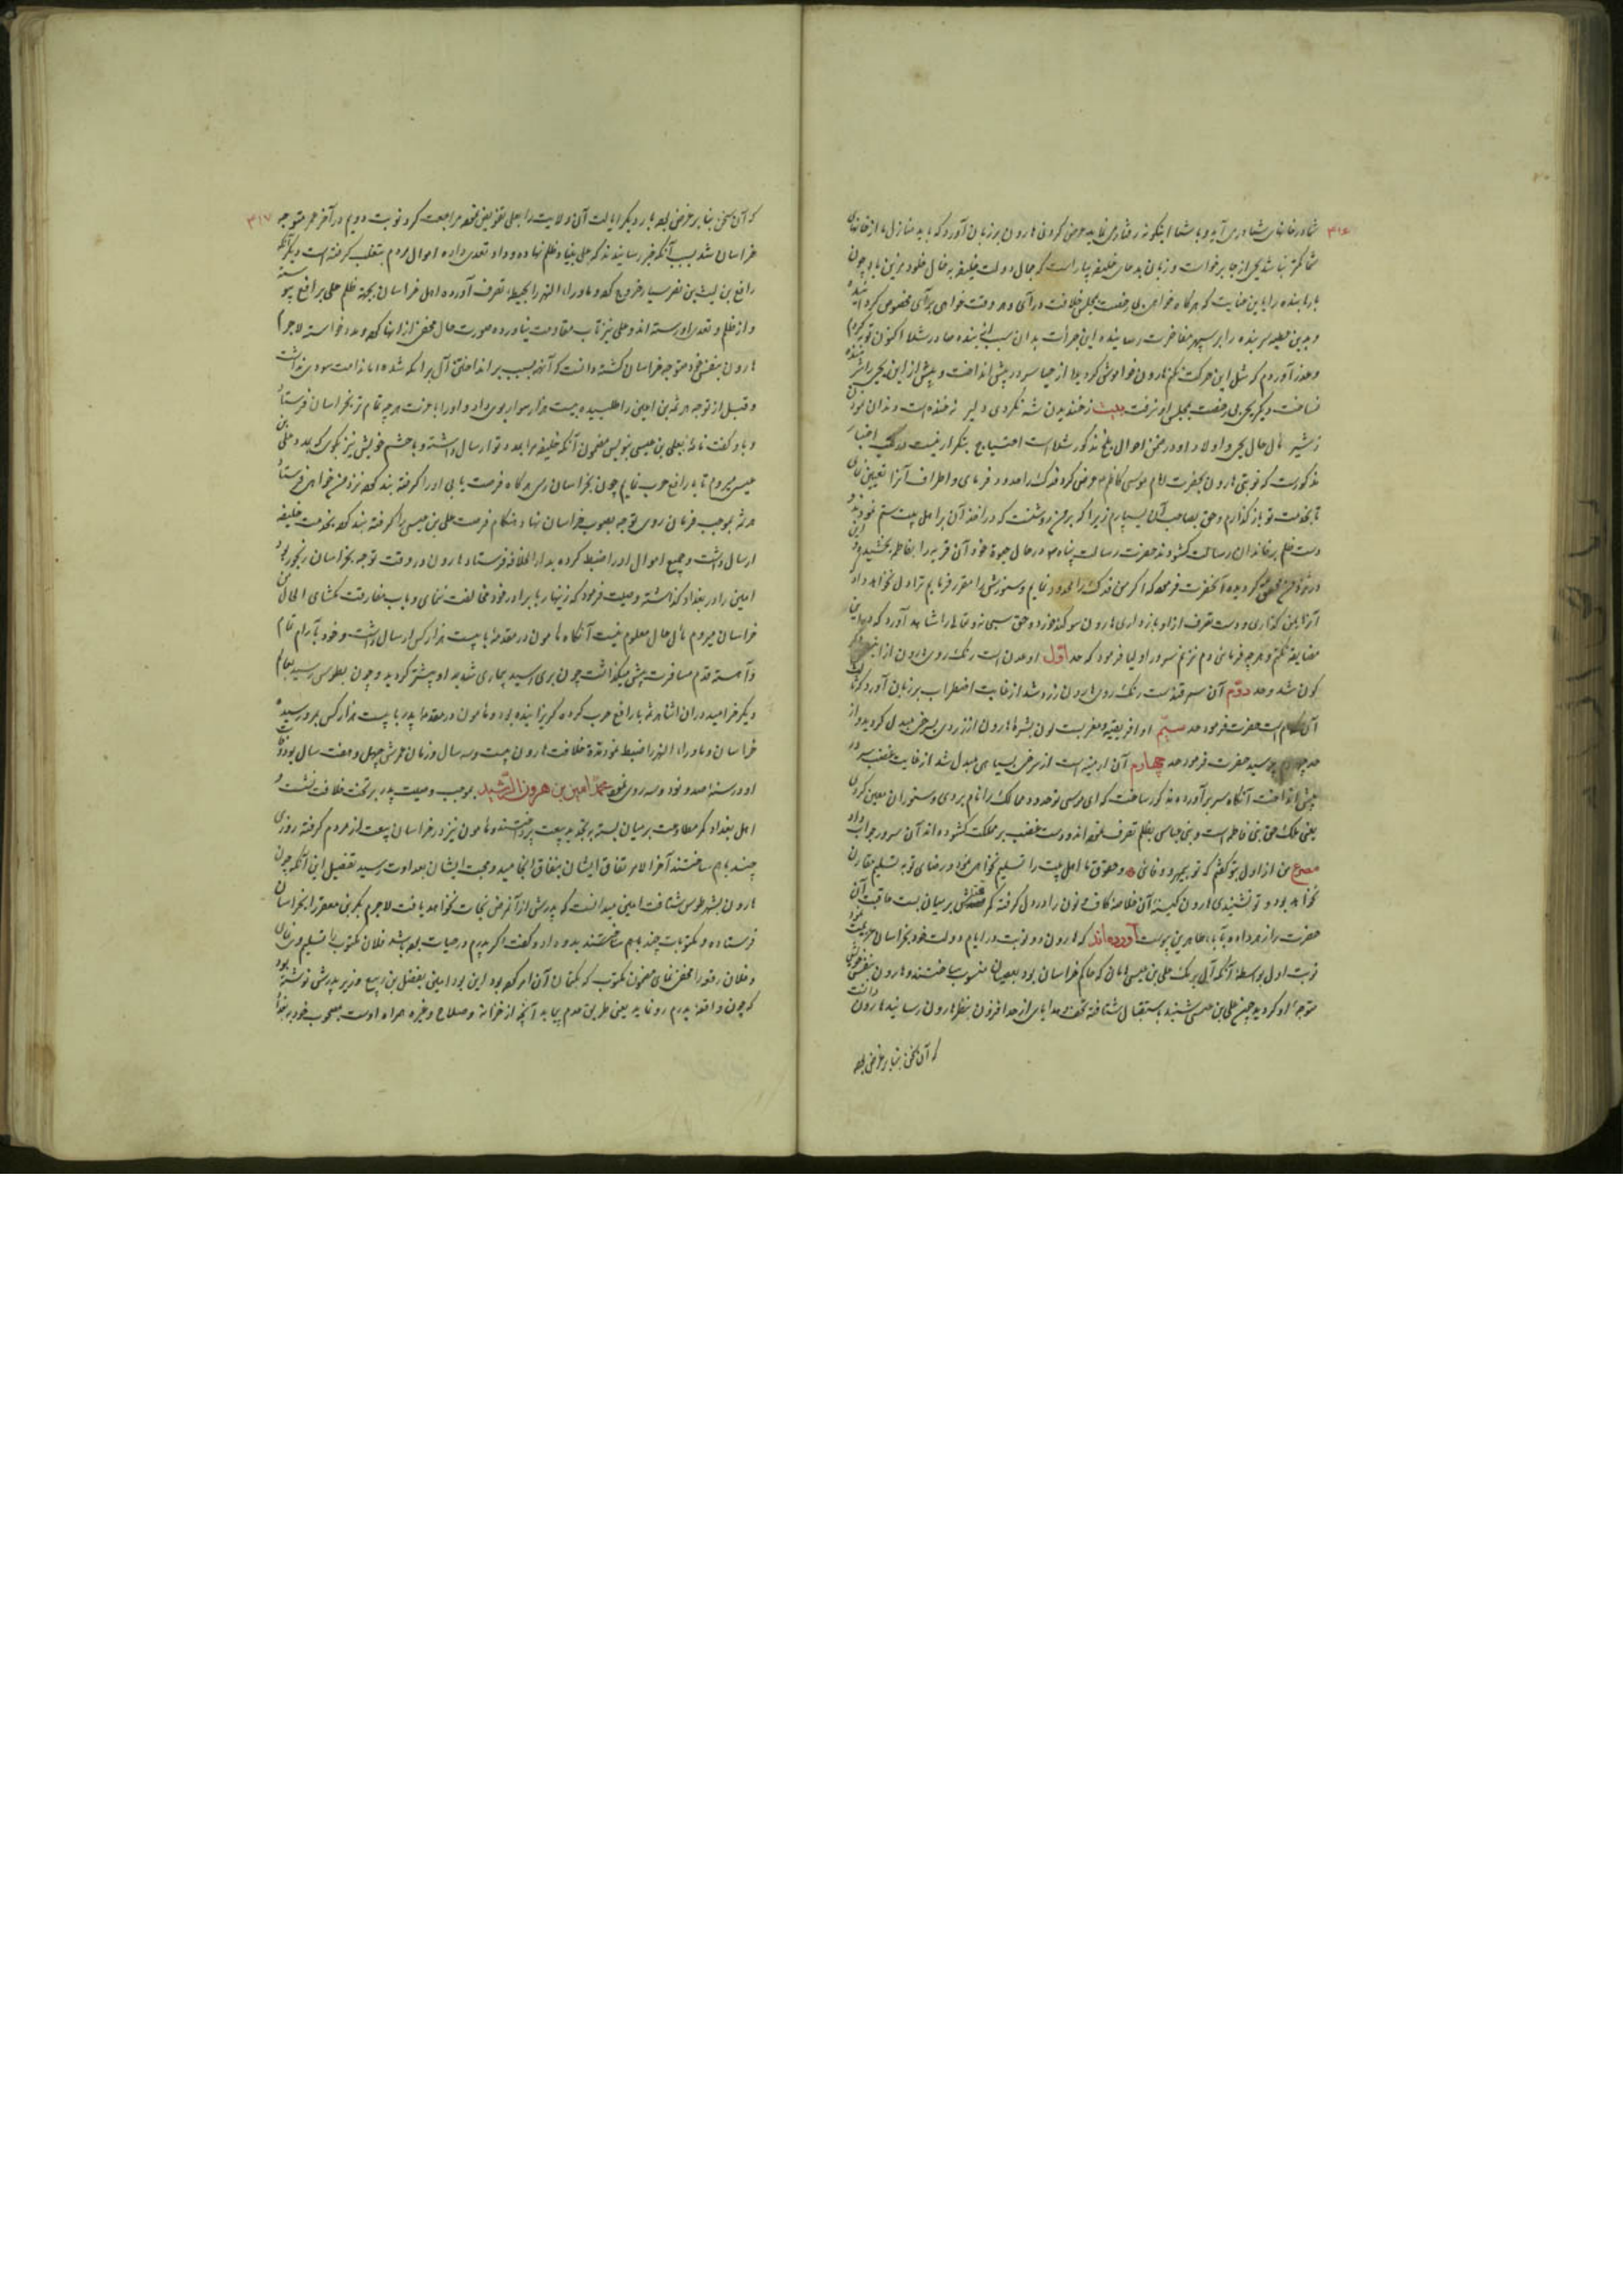 ۳۱۶
شما در خانهای شما درمی آید و با شما اینگونه رفتار می نماید عرض کرد نی هارون بر زبان آورد که باید منازل ما از خانهای
شما کمتر نباشد یحیی از جا برخاست و زبان بدعای خلیفه بیاراست که جمال دولت خلیفه بخال خلود مزین باد چون
بارها بنده را باین عنایت که هرگاه خواهم بی رخصت بمجلس خلافت درآی و هر وقت خواهی برآی مخصوص کرده اند
و بدین عطیه سر بنده را بر سپهر مفاخرت رسانیده این جرأت بدان سبب از بنده صادر شد اکنون توبه کردم
و عذر آوردم که مثل این حرکت نکنم هارون خاموش گردید از حیا سر در پیش انداخت و پیش ازین یحیی را شرمنده
نساخت دیگر یحیی بی رخصت بمجلس او نرفت بیت ز خندیدن شه نگردی دلیر نه خنده است دندان نمودن
ز شیر مآل حال یحیی و اولاد او در ضمن احوال بلخ مذکور شده است احتیاج بتکرار نیست در کتب اخبار
مذکورست که نوبتی هارون بحضرت امام موسی کاظم عرض کرد فدک را حدود فرمای و اطراف آنرا تعیین نمای
تا بخدمت تو باز گذارم و حق بصاحب آن بسپارم زیرا که بر من روشنست که در اخذ آن بر اهل بیت ستم نمودند و
دست ظلم بر خاندان رسالت گشودند حضرت رسالت پناه در حال حیوة خود آن قریه را بفاطمه بخشید و این
در نزد من محقق گردیده آنحضرت فرمود که اگر من فدک را حدود نمایم و سنورش را مقرر فرمایم ترا دل نخواهد داد
آنرا بمن گذاری و دست تصرف ازو باز داری هارون سوگند خورد و حق سبحانه و تعالی را شاهد آورد که درین
مضایقه نکنم و هر چه فرمائی دم نزنم سرور اولیا فرمود که حد اول او عدن است رنگ روی هارون ازین سخن دیگر
گون شد و حد دوم آن سمرقندست رنگ روی هارون زرد شد از غایت اضطراب بر زبان آورد که ثالث
آن کدام است حضرت فرمود حد سیم او افریقیه و مغربست لون بشره هارون از زردی بسرخی مبدل گردید و از
حد چهارم پرسید حضرت فرمود حد چهارم آن ارمنیه است از سرخی بسیاهی مبدل شد از غایت غضب سر در
پیش انداخت آنگاه سر برآورده مذکور ساخت که ای موسی تو حدود ممالک ما را نام بردی و سنوران معین کردی
یعنی ملک حق بنی فاطمه است و بنی عباس بظلم تصرف نموده اند و دست غضب بر مملکت گشوده اند آن سرور جواب داد
مصرع من از اول بتو گفتم که تو بیمهر و وفائی و حقوق ما اهل بیت را تسلیم نخواهی نمود و رضای تو به تسلیم مقارن
نخواهد بود و تو نشنیدی هارون کینه آن خلاصه کاف و نون را در دل گرفته کمر قتلش بر میان بست عاقبت آن
حضرت را زهر داده بآباء طاهرین پیوست آورده اند که هارون دو نوبت در ایام دولت خود بخراسان عزیمت نمود
نوبت اول بواسطه آنکه آل برمک علی بن عیسی ماهان که حاکم خراسان بود بعصیان منسوب ساختند و هارون بنفس خویش
متوجه او گردید چون علی بن عیسی شنید باستقبال شتافته تحف و هدایای از حد افزون بنظر هارون رسانید هارون دانست
که آن سخن بنا بر غرض بوده
۳۱۷
که آن سخن بنا بر غرض بوده بار دیگر ایالت آن ولایت را بعلی تفویض نموده مراجعت کرد نوبت دویم در آخر عمر متوجه
خراسان شد بسبب آنکه خبر رسانیدند که علی بنیاد ظلم نهاده و داد تعدی داده اموال مردم بتغلب گرفته است دیگر آنکه
رافع بن لیث بن نصر سیار خروج کرده و ماوراء النهر را بحیطه تصرف آورده اهل خراسان بجهة ظلم علی برافع پیوسته
و از ظلم و تعدی او رسته اند و علی نیز تاب مقاومت نیاورده صورت حال محض از انها کرده مدد خواسته لاجرم
هارون بنفس خود متوجه خراسان گشته دانست که آنهمه بسبب برانداختن آل برامکه شده اما ندامت سودی نداشت
و قبل از توجه هرثمه بن اعین را طلبیده بیست هزار سوار بوی داد و او را با عزت هر چه تمام تر بخراسان فرستاد
و باو گفت نامه بعلی بن عیسی بنویس مضمون آنکه خلیفه مرا بمدد تو ارسال داشته و با حشم خویش نیز بگوی که بمدد علی بن
عیسی میروم تا با رافع حرب نمایم چون بخراسان رسی هرگاه فرصت یابی او را گرفته بند کرده نزد من خواهی فرستاد
هرثمه بموجب فرمان روی توجه بصوب خراسان نهاد و هنگام فرصت علی بن عیسی را گرفته بند کرده بخدمت خلیفه
ارسال داشت و جمیع اموال او را ضبط کرده بدار الخلافه فرستاد هارون در وقت توجه بخراسان رنجور بود
امین را در بغداد گذاشته وصیت فرمود که زنهار با برادر خود مخالفت ننمای و باب مفارقت نگشای الحال من
خراسان میروم مآل حال معلوم نیست آنگاه مامون در مقدمه با بیست هزار کس ارسال داشت و خود بآرام تمام
و آهسته قدم مسافرت پیش میگذاشت چون بری رسید بیماری شدید او بیشتر گردید و چون بطوس رسید بعالم
دیگر خرامید در ان اثنا هرثمه با رافع حرب کرده گریزانیده بود و مامون در مقدمه پدر با بیست هزار کس بمرو رسیده
خراسان و ماوراء النهر را ضبط نمود مدة خلافت هارون بیست و سه سال و زمان عمرش چهل و هفت سال بود وفات
او در سنه صد و نود و سه روی نمود محمد امین بن هرون الرشید بموجب وصیت پدر بر تخت خلافت نشست و
اهل بغداد کمر مطاوعت بر میان بسته بتجدید بیعت پرداختند و مامون نیز در خراسان بیعت از مردم گرفته روزی
چند باهم ساختند آخر الامر نفاق ایشان بنفاق انجامید و محبت ایشان بعداوت رسید تفصیل این آنکه چون
هارون بشهر طوس شتافت امین میدانست که پدرش از آن مرض نجات نخواهد یافت لاجرم بکر بن معتمر را بخراسان
فرستاده و مکتوبات چند باهم ساختند بدو داد و گفت اگر پدرم در حیات بوده باشد فلان مکتوب را تسلیم وی نمای
و فلان رقعه را مخفی نمای مضمون مکتوب که بکتمان آن امر کرده بود این بود امین بفضل بن ربیع وزیر پدرش نوشته بود
که چون واقعه پدرم رو نماید یعنی طریق عدم پیماید آنچه از خزانه و سلاح و غیره همراه اوست بصحوب خود ببغداد